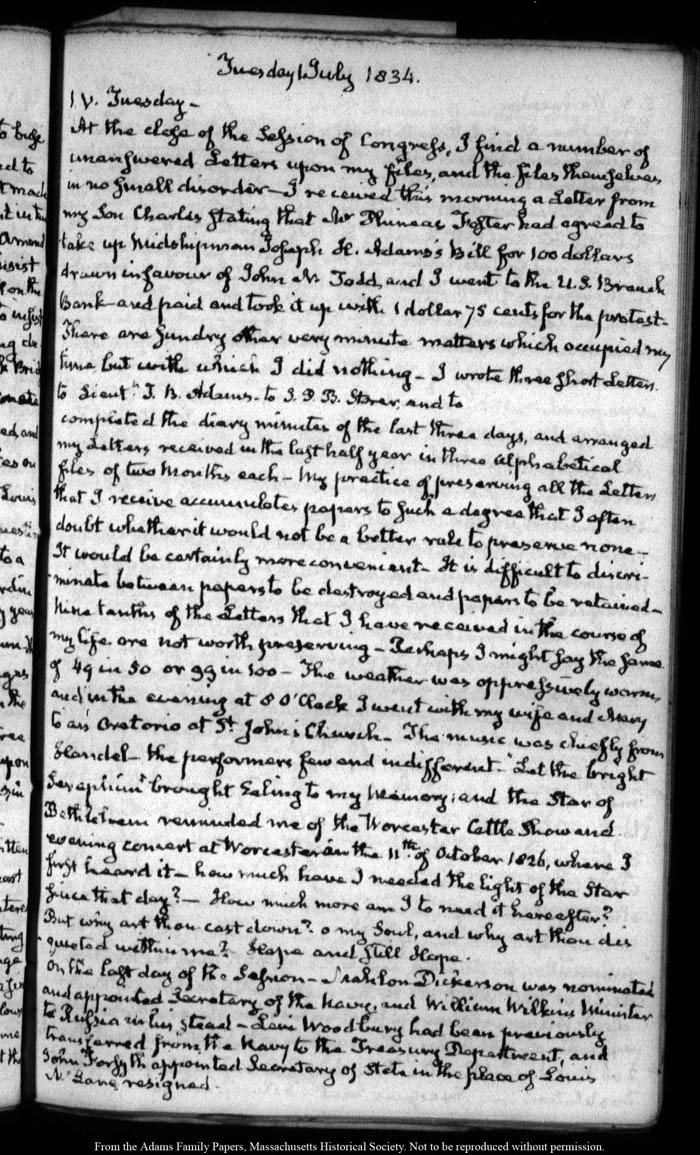 Tuesday 1 July 1834.
1. V. Tuesday —
At the close of the Session of Congress, I find a number of
unanswered Letters upon my files, and the files themselves
in no small disorder — I received this morning a Letter from
my Son Charles stating that Mr Phineas Foster had agreed to
take up Midshipman Joseph H. Adams's Bill for 100 dollars
drawn in favour of John N. Todd, and I went to the U.S. Branch
Bank and paid and took it up with 1 dollar 75 cents for the protest —
There are sundry other very minute matters which occupied my
time but with which I did nothing — I wrote three short Letters.
to Lieutt. T. B. Adams — to Storer, and to
completed the diary minutes of the last three days, and arranged
my Letters received in the last half year in three alphabetical
files of two Months each — My practice of preserving all the Letters
that I receive accumulates papers to such a degree that I often
doubt whether it would not be a better rule to preserve none —
It would be certainly more convenient — It is difficult to discri-
minate between papers to be destroyed and papers to be retained —
Nine tenths of the Letters that I have received in the course of
my life are not worth preserving — Perhaps I might say the same
of 49 in 50 or 99 in 100 — The weather was oppressively warm,
and in the evening at 8 O'Clock I went with my wife and Mary
to an Oratorio at St. John's Church — The music was chiefly from
Handel — the performers few and indifferent — "Let the bright
Seraphim" brought Ealing to my Memory; and the Star of
Bethlehem reminded me of the Worcester Cattle Show and
evening concert at Worcester on the 11th of October 1826, where I
first heard it — how much have I needed the light of the Star
since that day? — How much more am I to need it hereafter?
But why art thou cast down? o my Soul, and why art thou dis
quieted within me? Hope and still Hope.
On the last day of the Session — Mahlon Dickerson was nominated
and appointed Secretary of the Navy, and William Wilkins Minister
to Russia in his stead — Levi Woodbury had been previously
transferred from the Navy to the Treasury Department, and
John Forsyth appointed Secretary of State in the place of Louis
McLane, resigned.
From the Adams Family Papers, Massachusetts Historical Society. Not to be reproduced without permission.